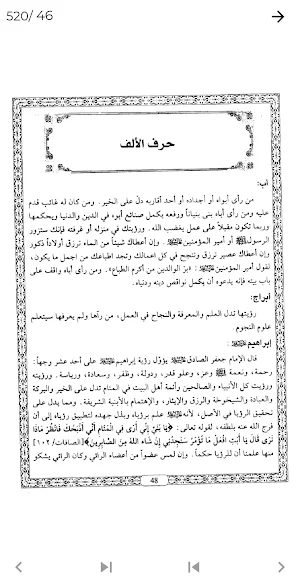 520/ 46
حرف الألف
أب:
من رأى أبواه أو أجداده أو أحد أقاربه دلّ على الخير. ومن كان له غائب قدم
عليه ومن رأى أباه بنى بنياناً ورفعه يكمل صنائع أبوه في الدين والدنيا ويحكمها
وربما تكون مقبلاً على عمل يغضب الله. ورؤيتك في منزله أو غرفته فإنك ستزور
الرسول ﷺ أو أمير المؤمنين. وإن أعطاك شيئاً من الماء ترزق أولاداً ذكور
وإن أعطاك عصير ترزق وتنجح في كل اعمالك وتجد اطباعك من اجمل ما يكون،
نقول أمير المؤمنين: «برّ الوالدين من أكرم الطباع». ومن رأى أباه واقف على
باب بيته فإنه يدعوه أن يكمل نواقص دينه ودنياه.
ابراج:
رؤيتها تدل العلم والمعرفة والنجاح في العمل، من رآها ولم يعرفها سيتعلم
علوم النجوم.
إبراهيم:
قال الإمام جعفر الصادق يؤول رؤية إبراهيم على أحد عشر وجهاً:
رحمة، ونعمة الله وعز، وعلو قدر، ودولة، وظفر، وسعادة، ورياسة. ورؤيته
ورؤيت كل الأنبياء والصالحين وأئمة أهل البيت في المنام تدل على الخير والبركة
والعبادة والشيخوخة والرزق والإيثار، والإهتمام بالأبنية الشريفة. ومما يدل على
تحقيق الرؤيا في الأصل، لأنه علم برؤياه، وبذل جهده لتطبيق رؤياه إلى أن
فرج الله عنه بلطفه، لقوله تعالى: ﴿يَا بُنَيَّ إِنِّي أَرَى فِي الْمَنَامِ أَنِّي أَذْبَحُكَ فَانظُرْ مَاذَا
تَرَى قَالَ يَا أَبَتِ افْعَلْ مَا تُؤْمَرُ سَتَجِدُنِي إِن شَاء اللَّهُ مِنَ الصَّابِرِينَ﴾ [الصافات/١٠٢]
منها علمنا أن للرؤيا حكماً. وإن لمس عضواً من أعضاء الرائي وكان الرائي يشكو
48